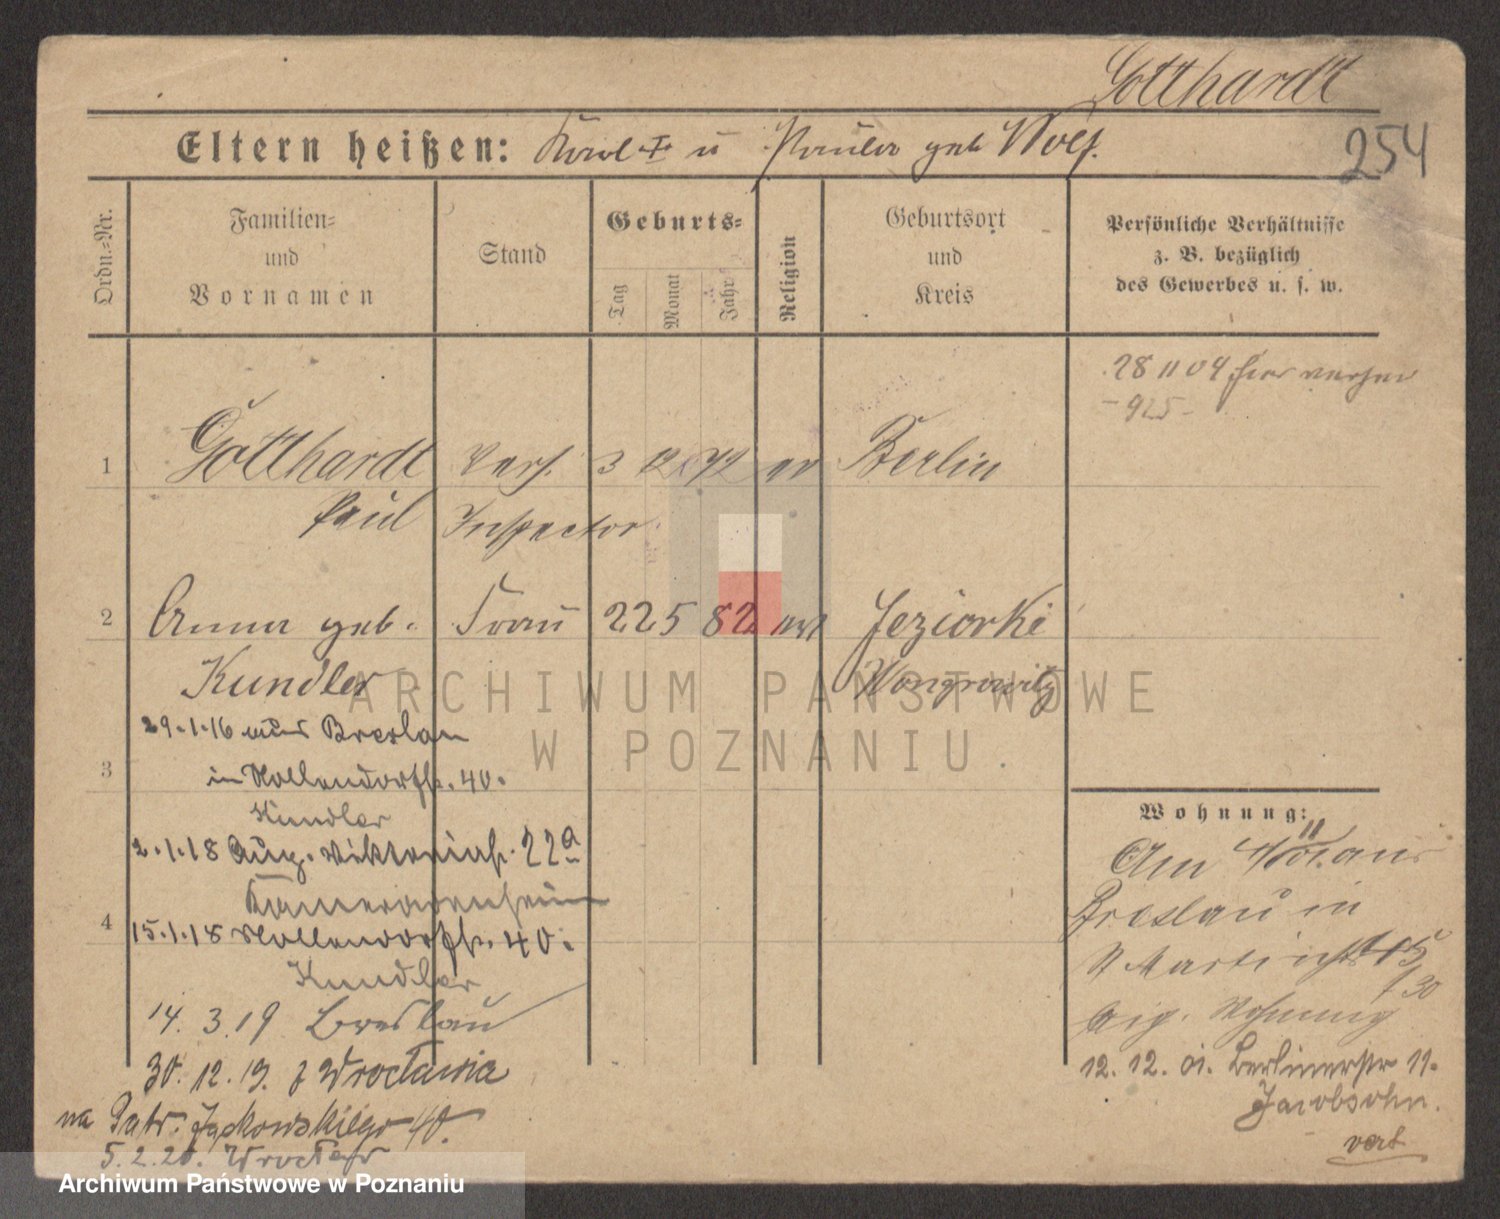 Gotthardt
Eltern heißen: Karl I u Paula geb Wolf.
254
Ordn.-Nr.
Familien-
und
Vornamen
Stand
Geburts-
Tag
Monat
Jahr
Religion
Geburtsort
und
Kreis
Persönliche Verhältnisse
z. B. bezüglich
des Gewerbes u. s. w.
28 11 04 hier
- 925 -
1 Gotthardt Vers. 3 12 72 ev Berlin
Paul Inspector
2 Anna geb. Frau 22 5 82 Jeziorki
Kundler Wongrowitz
ARCHIWUM PAŃSTWOWE
W POZNANIU
29.1.16 aus Breslau
3 in Nollendorfstr. 40.
Kundler
2.1.18 Aug. Viktoriastr. 22a
Kameradenheim
4 15.1.18 Nollendorfstr. 40.
Kundler
14. 3. 19 Breslau
30. 12. 19. z Wrocławia
na Patr. Jackowskiego 40.
5. 2. 20. Wrocław
Wohnung:
Am aus
Breslau in
St Martinstr
Wohnung
12. 12. 01. Berlinerstr 11.
Jacobsohn.
vert
Archiwum Państwowe w Poznaniu